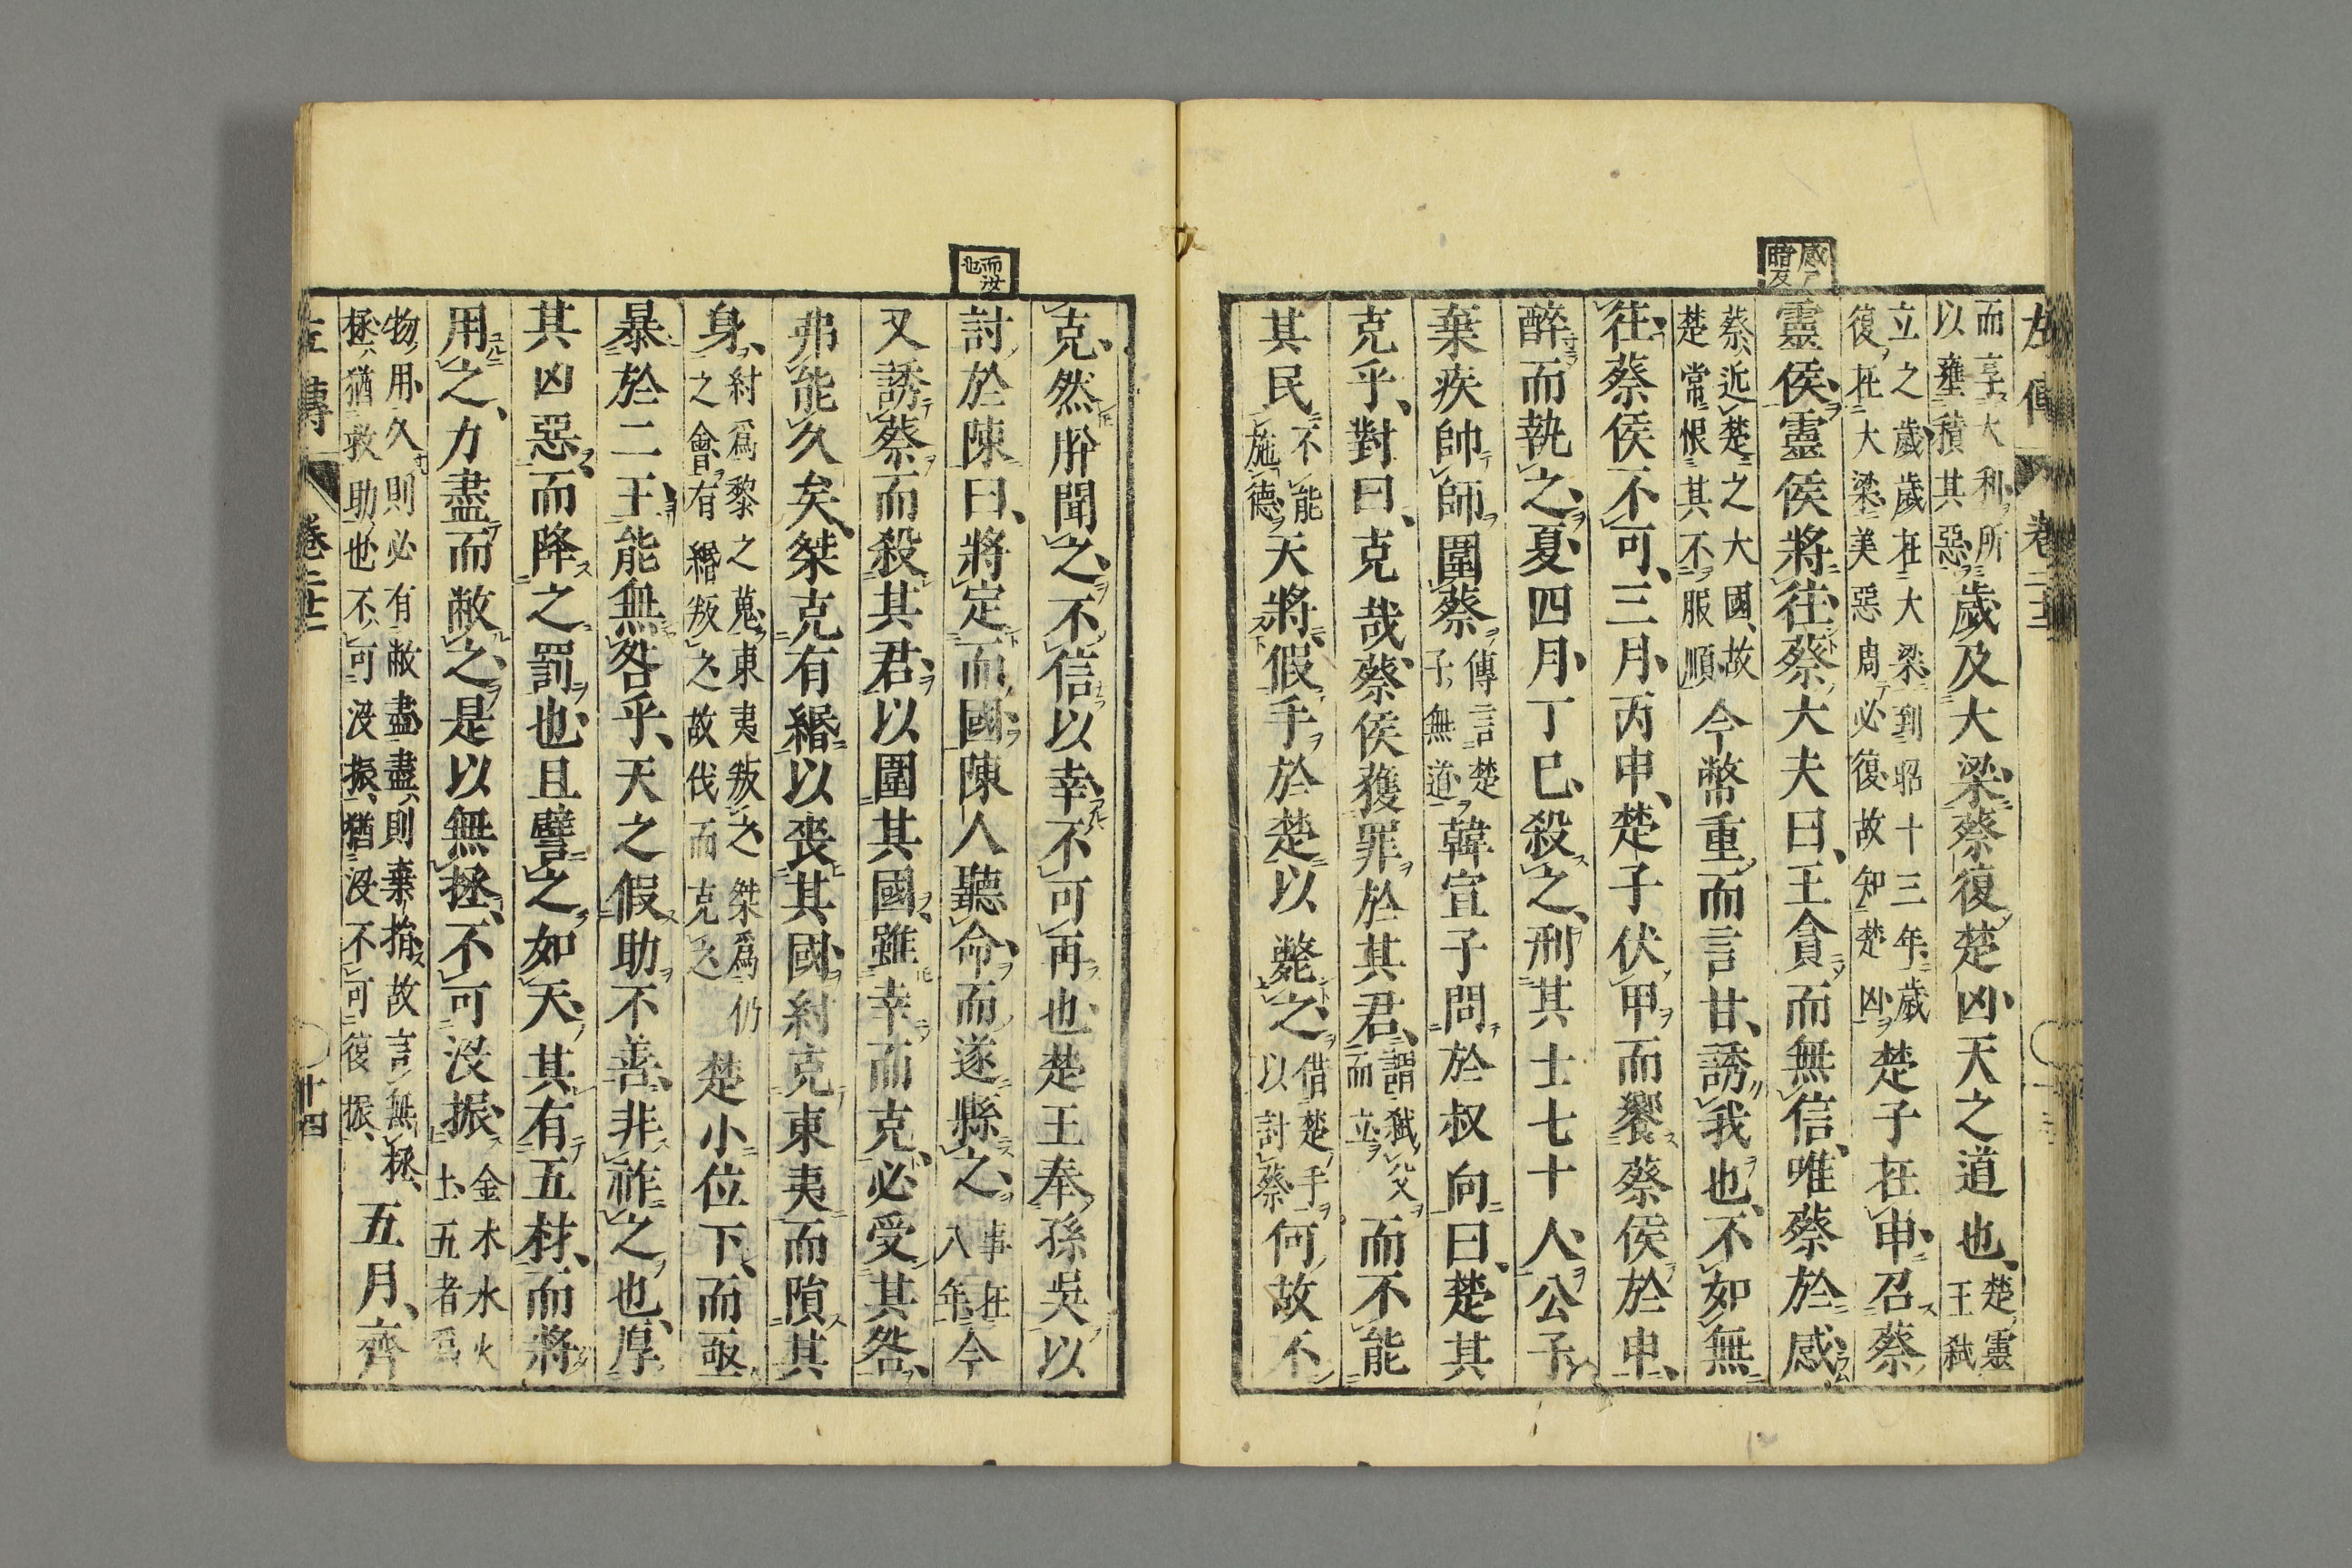 左傳 卷二十二
感戸暗反
而享大利所以壅積其惡歲及大梁蔡復楚凶天之道也楚靈王弑
立之歲歲在大梁到昭十三年歲復在大梁美惡周必復故知楚凶楚子在申召蔡
靈侯靈侯將往蔡大夫曰王貪而無信唯蔡於感
蔡近楚之大國故楚常恨其不服順今幣重而言甘誘我也不如無
往蔡侯不可三月丙申楚子伏甲而饗蔡侯於申
醉而執之夏四月丁巳殺之刑其士七十人公子
棄疾帥師圍蔡傳言楚子無道韓宣子問於叔向曰楚其
克乎對曰克哉蔡侯獲罪於其君謂弑父而立而不能
其民不能施德天將假手於楚以斃之借楚手以討蔡何故不
而汝也
克然肸聞之不信以幸不可再也楚王奉孫吳以
討於陳曰將定而國陳人聽命而遂縣之事在八年今
又誘蔡而殺其君以圍其國雖幸而克必受其咎
弗能久矣桀克有緡以喪其國紂克東夷而隕其
身紂爲黎之蒐東夷叛之桀爲仍之會有緡叛之故伐而克之楚小位下而亟
暴於二王能無咎乎天之假助不善非祚之也厚
其凶惡而降之罰也且譬之如天其有五材而將
用之力盡而敝之是以無拯不可沒振金木水火土五者爲
物用久則必有敝盡盡則棄捐故言無拯拯猶救助也不可沒振猶沒不可復振五月齊
左傳 卷二十二 十四